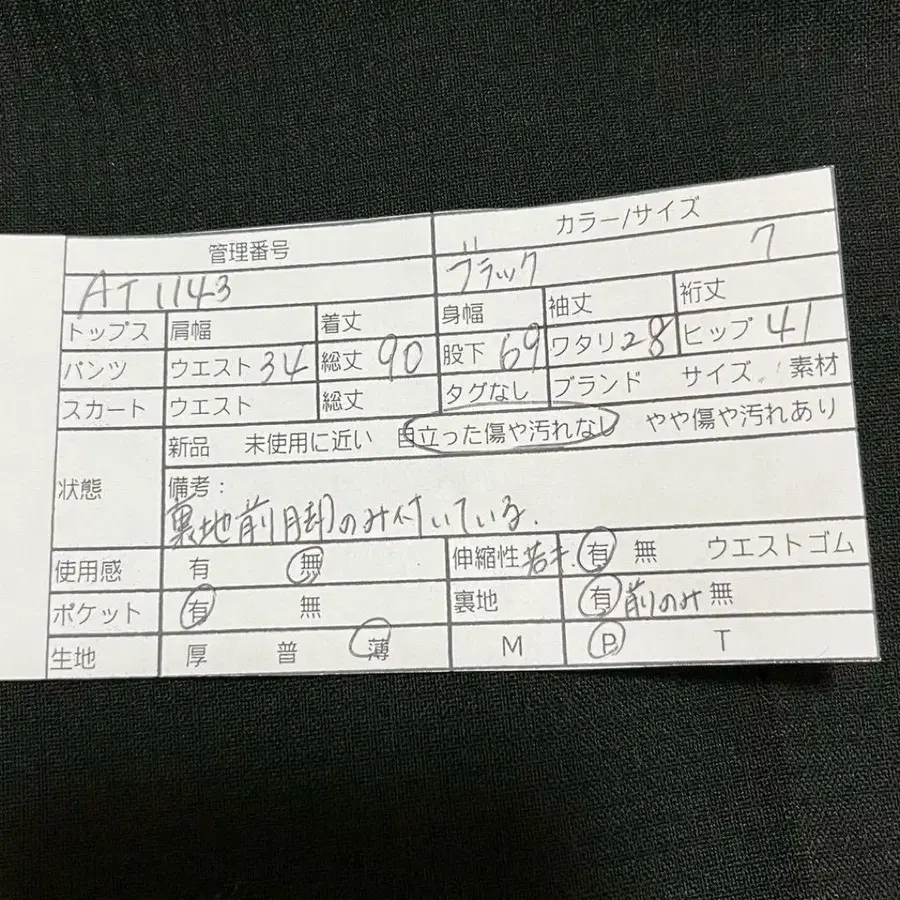 管理番号 カラー/サイズ
AT1143 ブラック 7
トップス 肩幅 着丈 身幅 袖丈 裄丈
パンツ ウエスト34 総丈90 股下69 ワタリ28 ヒップ41
スカート ウエスト 総丈 タグなし ブランド サイズ 素材
状態 新品 未使用に近い 目立った傷や汚れなし やや傷や汚れあり
備考:
裏地前脚のみ付いている.
使用感 有 無 伸縮性 若干. 有 無 ウエストゴム
ポケット 有 無 裏地 有 前のみ 無
生地 厚 普 薄 M P T